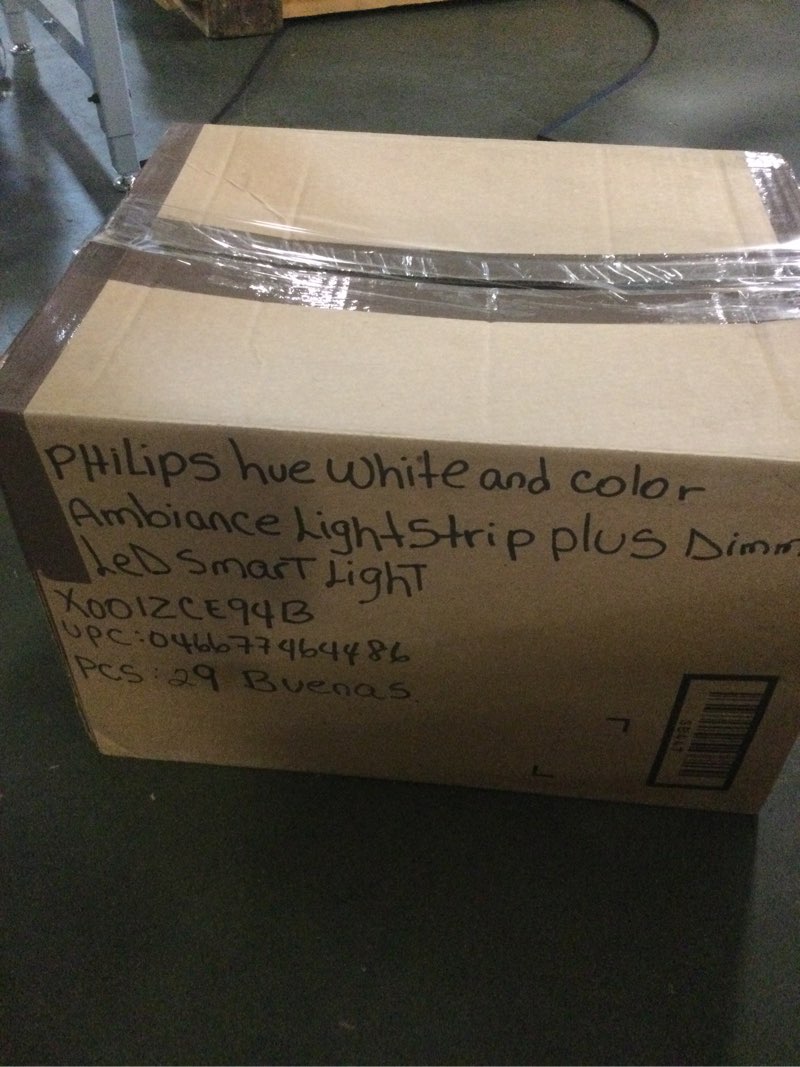 PHiLips hue White and color
Ambiance LightStrip plus Dimm
LeD SmarT LighT
X001ZCE94B
UPC:046677464486
PCS:29 Buenas.